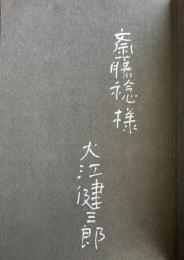 斎藤稔様
大江健三郎